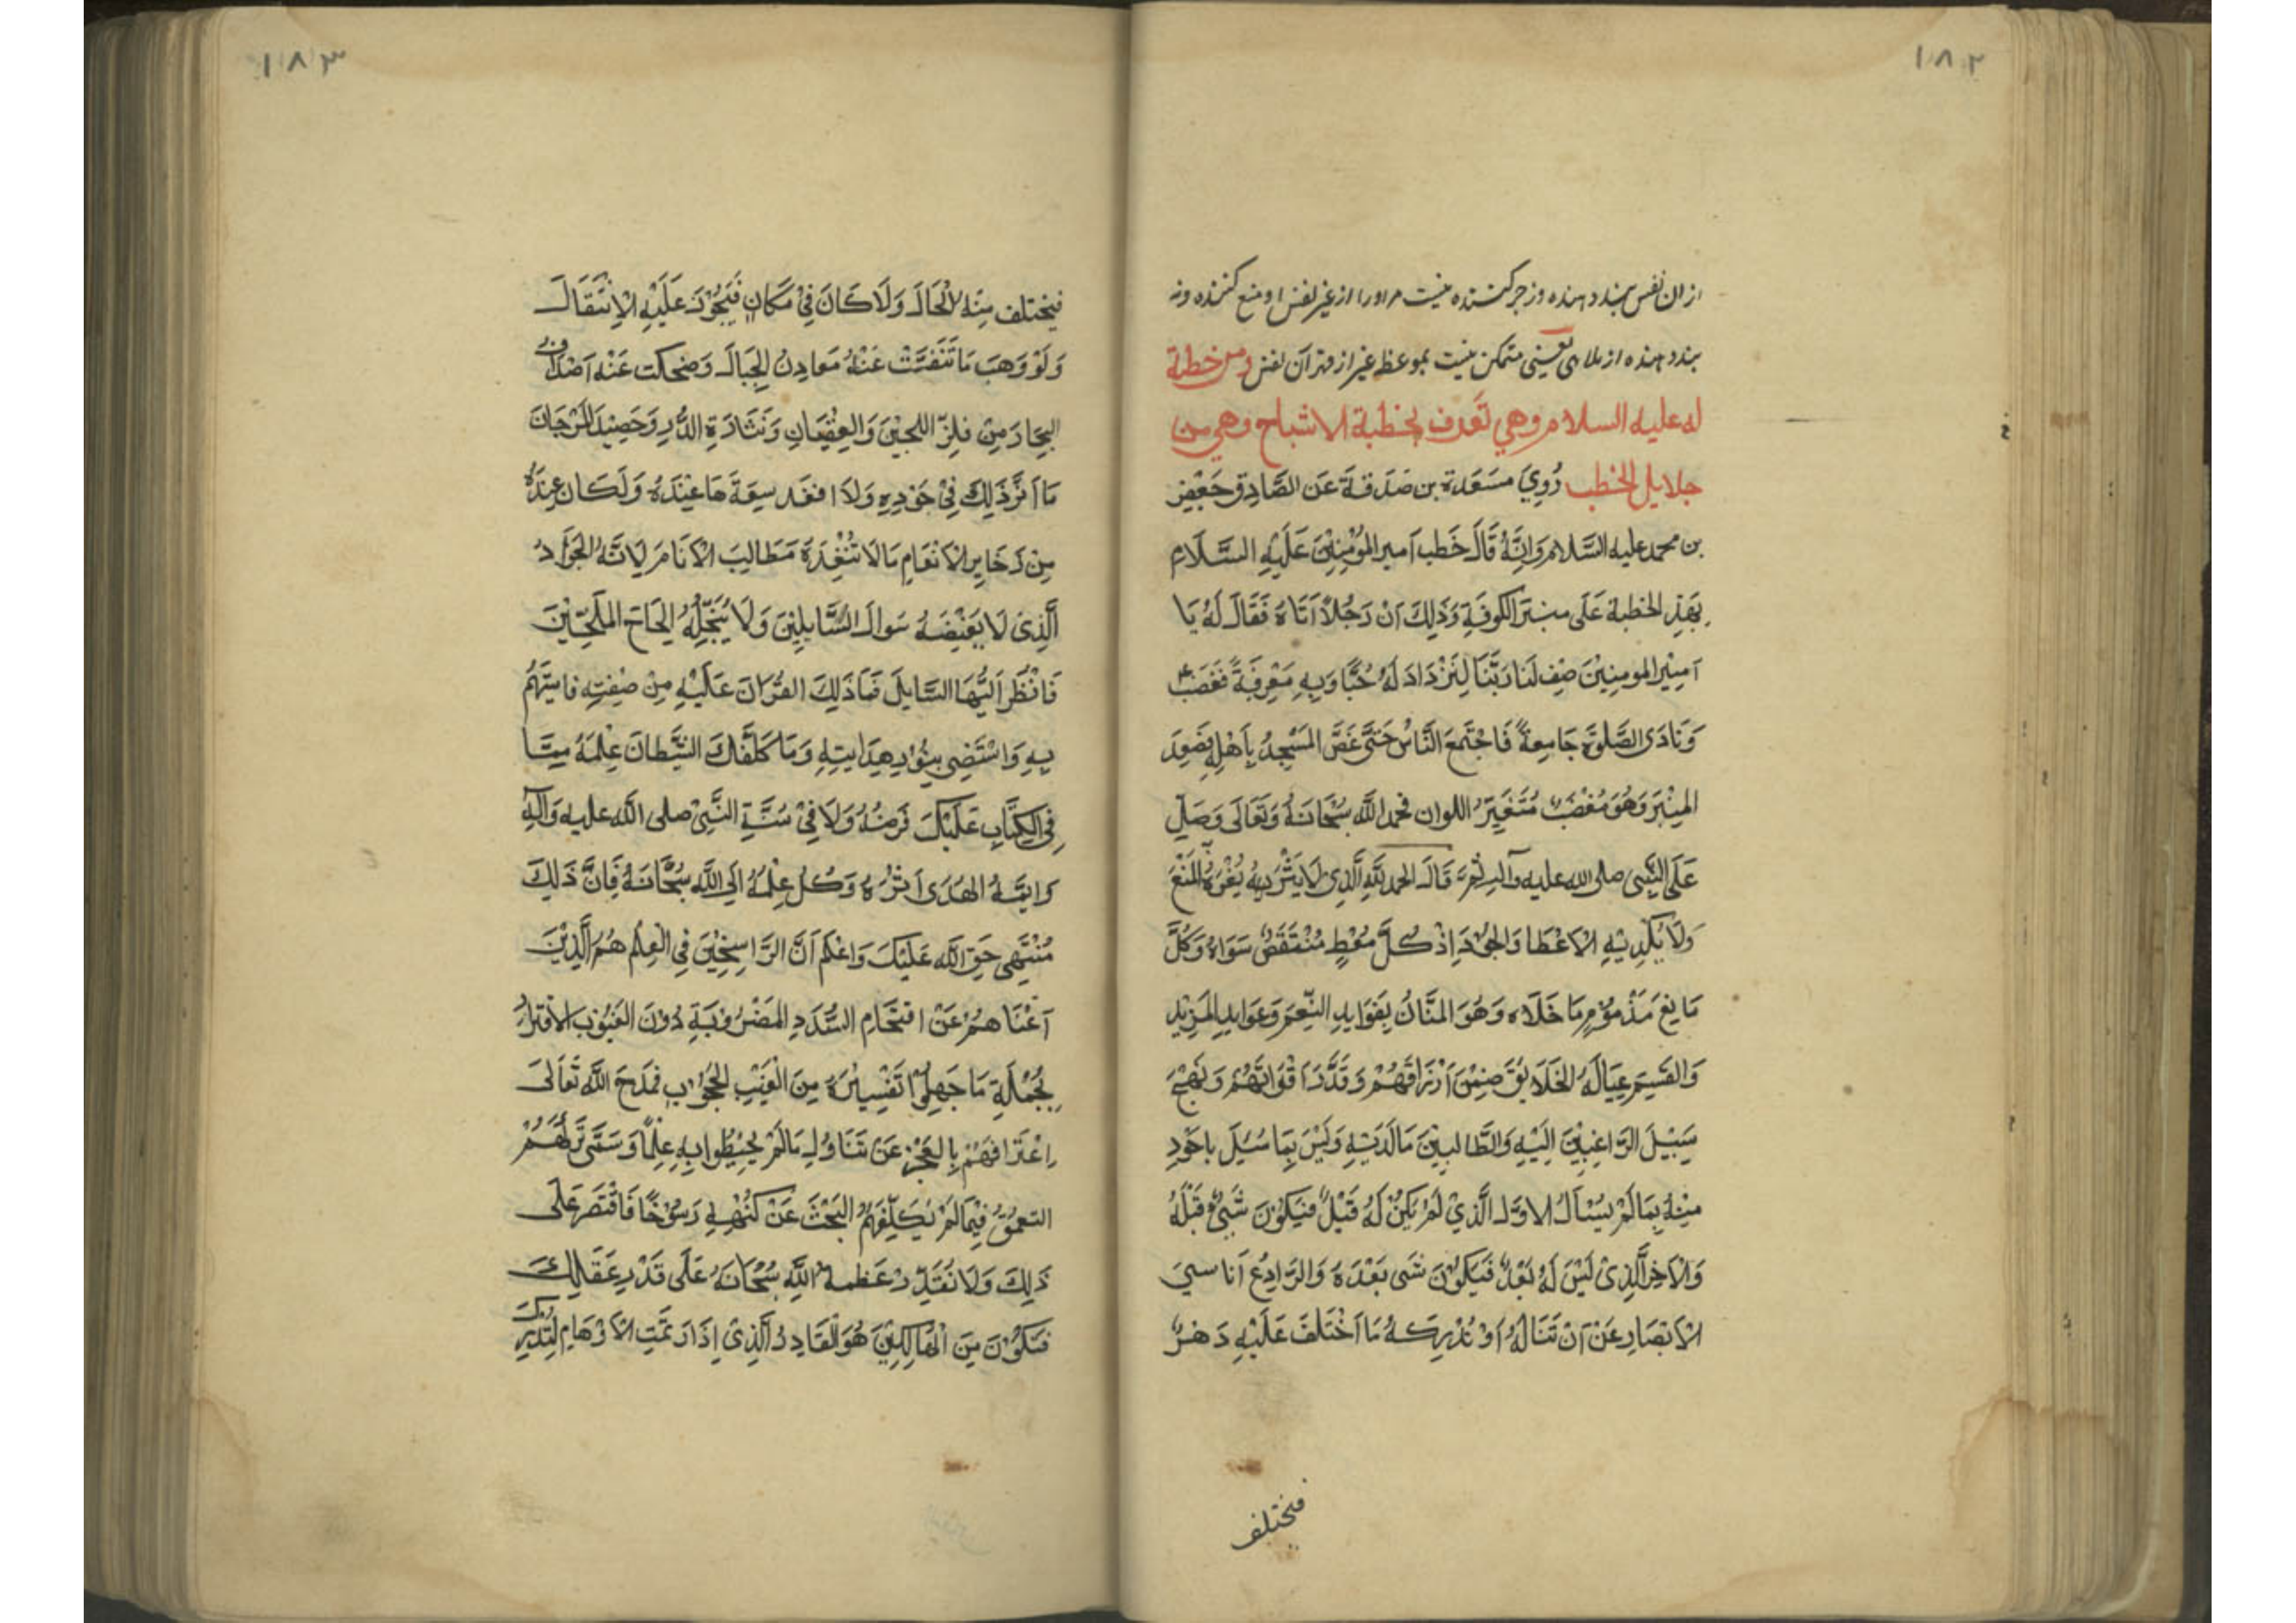 ١٨٢
از ان نفس پند دهنده وزجر کننده نیست مر اورا از غیر نفس او منع کننده ونه
پند دهنده از ملاهی یعنی متمکن نیست بموعظه غیر از قهر آن نفس ومن خطبة
له عليه السلام وهي تَعرف بخطبة الاشباح وهي من
جلايل الخطب رُوِيَ مسَعَدة بن صَدَقةَ عَن الصَّادِق جَعْفِر
بن محمد عليه السَّلام وَانَِّهُ قَالَ خَطب اَمير المؤمِنينَ عَلَيْهِ السَّلَام
بِهَذِ الخطبة عَلَى منبَر الكوفَةِ وَذَلِكَ اَنْ رَجُلاً اَتَاهُ فَقَالَ لَهُ يَا
اَمِيْر المومنِيْنَ صِف لَنَا رَبَّنَا لِنَزْدَادَ لَهُ حُبًّا وَبِهِ مَعْرِفَةً فَغَضبَ
وَنَادَى الصَّلوَة جَامِعةً فَاجْتَمَعَ النَّاسُ حَتَّى غَصَّ المَسْجِدُ بِاَهْلِهِ فصَعِدَ
المِنْبَرَ وَهُوَ مُغْضَبٌ مُتَغَيِّرَ اللوان فحمد اللَّه سُبْحَانَهُ وَتَعَالَى وَصَلّى
عَلَى النَّبِى صلى الله عليه وآله ثُمَّ قَالَ الحمد للَّهِ الَّذِي لَا يَفِْرُهُ المَنْعَ
وَلَا يُكْدِيْهِ الاَعْطَا وَالجُوْدَ اِذْ كُلَّ مُعْطٍ مُنْتَقَصٌ سَوَاهُ وَكُلَّ
مَانِعَ مَذْمُوْمٍ مَا خَلَاه وَهُوَ المَنَّانُ بِفَوَايدِ النِّعَم وَعَوَايدِ المَزِيْدِ
وَالقَسِم عِيَالَهُ الخَلَايقَ ضمِنَ اَرْزَاقَهُمْ وَقَدَّرَ اَقْوَاتَهُمْ وَنَهَجَ
سَبِيْلَ الرَّاغِبِيْنَ اِلَيْهِ وَالطَّالبِيْنَ مَا لَدَيْهِ وَلَيْسَ بِمَا سُئِلَ باجَودِ
مِنْهُ بِمَا لَمْ يُسْاَلْ الاوَّل الَّذِي لَمْ يَكُنْ لَهُ قَبْلٌ فَيَكُوْنَ شَىْءٌ قَبْلَهُ
وَالْآخِر الَّذِىْ لَيْسَ لَهُ بَعْدٌ فَيَكُوْنَ شَى بَعْدَهُ وَالرَّادِعُ اَنَاسِىَ
الاَبْصَارِ عَنْ اَنْ تَنَالَهُ اَوْ تُدْرِكهُ مَا اَخْتَلَفَ عَلَيْهِ دَهْرٌ
فيختلف
١٨٣
فيختلف مِنْهُ الْحَالَ وَلَا كَانَ فِيْ مَكَانٍ فَيَجُوْزَ عَلَيْهِ الْاِنْتِقَالَ
وَلَوْ وَهَبَ مَا تَنَفَّسَتْ عَنْهُ مَعَادِنُ الجِبَالَ وَضحكت عَنْه اَصْدَافُ
البِحَارَ مِنْ فلِزِّ اللجَيْنَ وَالعِقْيَانِ وَنَثَارَةِ الدُّرِ وَحَصِيْدِ المَرْجَانَ
مَا اَثَّرَ ذَلِكَ فِيْ جَوْدِهِ وَلَا انفَدَ سِعَةَ مَا عِنْدَهُ وَلَكَانَ عِنْدَهُ
مِنْ ذَخَايرِ الاَنْعَامِ مَا لَا تُنْفِدَهُ مَطَالِبَ الاَنَامَ لِاَنَّهُ الجَوَّادُ
الَّذِىْ لَا يَغِيْضَهُ سَوالَ السَّايلِيْنَ وَلَا يُبَخِّلُهُ اِلحَاحَ المُلحِّيْنَ
فَانْظُرَ اَيُّهَا السَّايلَ فَمَا دَلَّكَ القُرْآنَ عَلَيْهِ مِنْ صِفْتِهِ فايتَمَّ
بِهِ وَاسْتَضِى بِنُوْرِ هِدَايتِهِ وَمَا كَلَّفَكَ الشَّيْطَانَ عِلمَهُ مِمَّا
فِى الكِتَّابِ عَلَيْكَ فَرضُهُ وَلَا فِيْ سُنَّةِ النَّبِىّ صلى اللَّه عليه وَآلِهِ
وَايمَّهُ الهُدَى اَثرُهُ وَكُلْ عِلْمَهُ اِلَى اللَّهِ سُبْحَانَهُ فَاِنَّ ذَلِكَ
مُنْتَهى حَقِ اللَّهِ عَلَيْكَ وَاعْلَم اَنَّ الرَّاسِخِيْنَ فِى الْعِلْمِ هُمُ الَّذِيْنَ
اَغْنَاهُمْ عَنْ اقتحَام السُّدَدِ المَضْرُوْبَةِ دُوْنَ الغُيُوْبِ الاقرَارُ
بِجُمْلَةِ مَا جَهِلُوْا تَفْسِيْرَهُ مِنَ الْغَيْبِ المَحْجُوْبِ فمَدَحَ اللَّهُ تَعَالَى
اِعْتَرَافَهُمْ بِالعَجْزِ عَنْ تَنَاوُلِ مَا لَمْ يُحِيْطُوا بِهِ عِلْمًا وَسَمَّى تَرْكَهُمْ
التعمُّقَ فِيْمَا لَمْ يُكَلِّفَهُمْ البَحْثَ عَنْ كُنْهِهِ رَسُوْخًا فَاقْتَصَرَ عَلَى
ذَلِكَ وَلَا تُقَدِّرْ عَظمة اللَّهِ سُبْحَانَهُ عَلَى قَدْرِ عَقَالِكَ
فَتكُوْنَ مِنَ الْهَالِكِيْنَ هُوَ القَادِرُ الَّذِىْ اِذَا رَتَمَتِ الاَوْهَامِ لِتُدْرِكَ